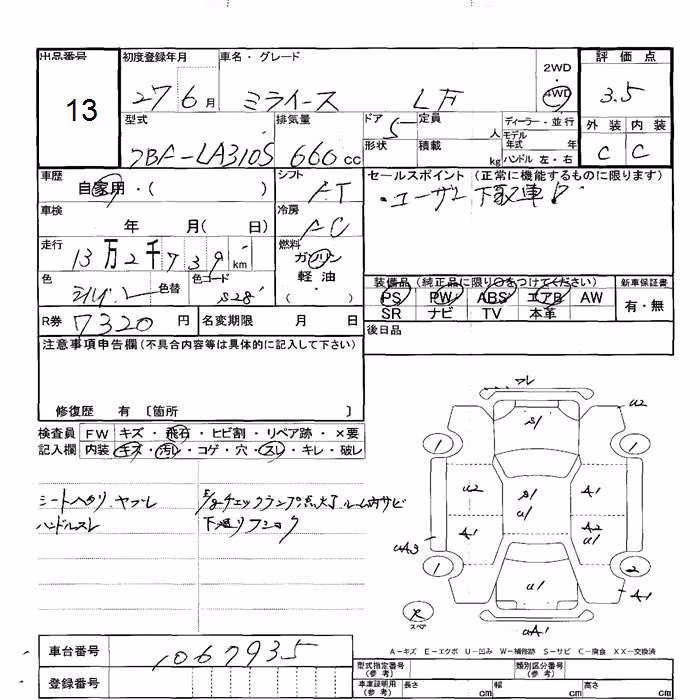 出品番号 初度登録年月 車名・グレード 2WD・4WD 評価点
13 27 6月 ミライース LF 3.5
型式 排気量 ドア 定員 ディーラー・並行 外装 内装
DBA-LA310S 660cc 5 人 モデル年式 年 C C
形状 積載 kg ハンドル 左・右
車歴 自家用・( ) シフト AT セールスポイント (正常に機能するものに限ります)
・ユーザー下取車!
車検 年 月( 日) 冷房 AC
走行 13万2千739km 燃料 ガソリン・軽油・( )
色 シルバー 色替 色コード S28
装備品(純正品に限り○をつけてください) 新車保証書
PS PW ABS エアB AW 有・無
SR ナビ TV 本革
R券 7320円 名変期限 月 日 後日品
注意事項申告欄(不具合内容等は具体的に記入して下さい)
修復歴 有〔箇所 〕
検査員 FW キズ・飛石・ヒビ割・リペア跡・×要
記入欄 内装 キズ・汚レ・コゲ・穴・スレ・キレ・破レ
シートヘタリ、ヤブレ E/gチェックランプ点灯、ルーム内サビ
ハンドルスレ 下廻リフショク
フレ
S1
U2
1 1
U2 S1 U1 A1
A1 A2 U1
UA3
1 2
U1 A1
スペア
UA1
A-キズ E-エクボ U-凹み W-補修跡 S-サビ C-腐食 XX-交換済
車台番号 1067935
登録番号
型式指定番号(参考) 類別区分番号(参考)
車庫証明用(参考) 長さ cm 幅 cm 高さ cm